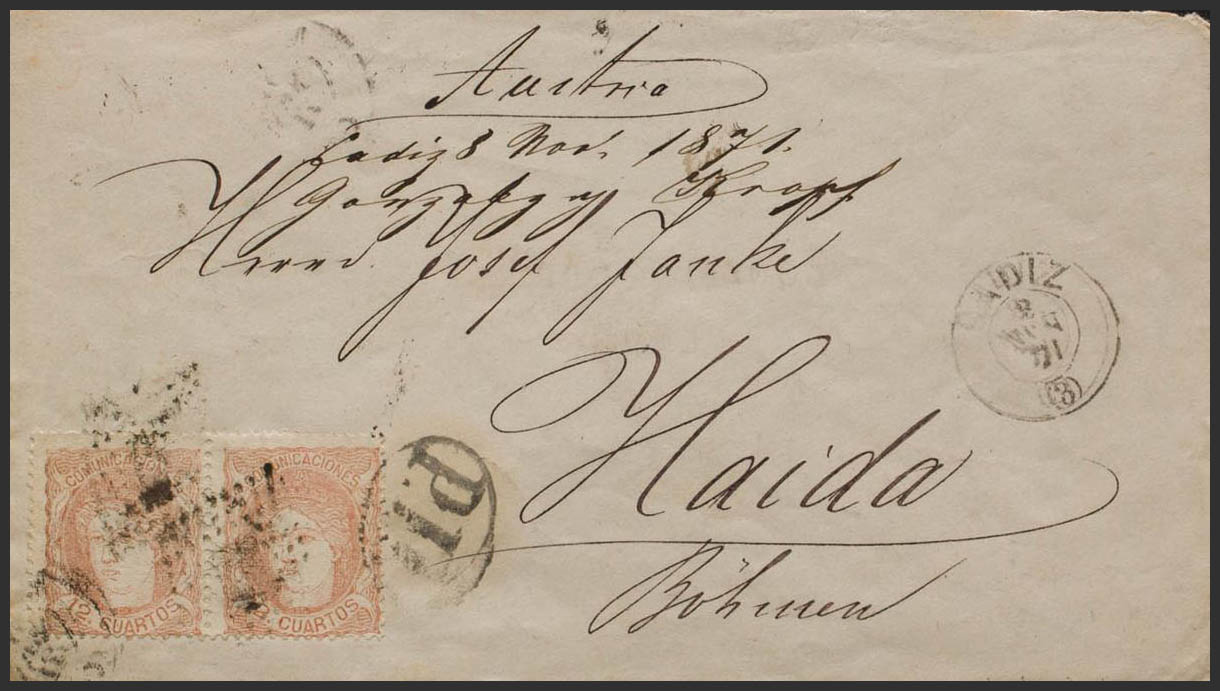 Austria
Cadiz 8 Nov. 1871.
Gonzalez y Kropf
Herrn Josef Janke
Haida
Böhmen
CADIZ
8
NOV
71
(3)
PD
COMUNICACIONES COMUNICACIONES
12 CUARTOS 12 CUARTOS